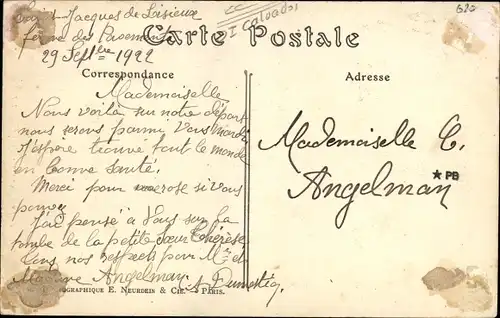 Saint-Jacques de Lisieux
ferme des Pavements
29 Septbre 1922
Calvados
620
Carte Postale
Correspondance
Adresse
Mademoiselle
Nous voilà sur notre départ
nous serons parmi Vous mardi
J'espère trouvé tout le monde
en bonne santé.
Merci pour rose si vous
pouvez
J'ai pensé à Vous sur la
tombe de la petite Sœur Thérèse
tous nos respects pour Mr et
Madame Angelman
Mademoiselle C.
Angelman
★PB
E. NEURDEIN & CIE. PARIS.